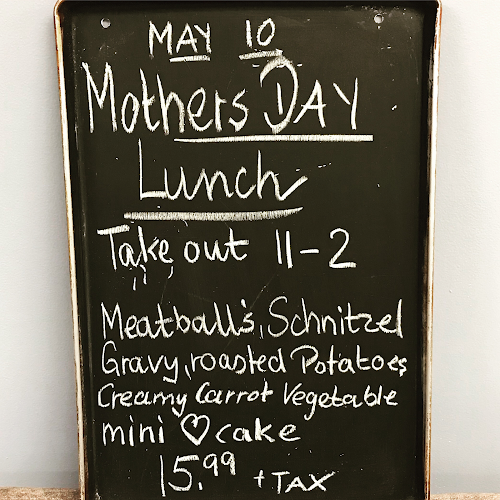 MAY 10
Mothers DAY
Lunch
Take out 11-2
Meatball's, Schnitzel
Gravy, roasted Potatoes
Creamy Carrot Vegetable
mini ♡ cake
15.99 + TAX